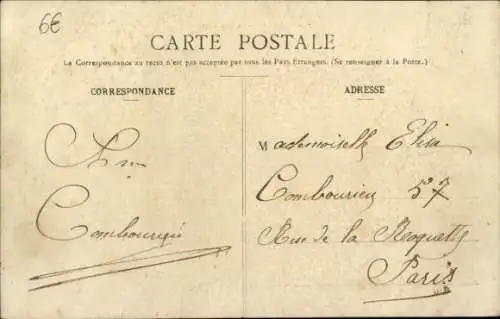 6€
CARTE POSTALE
La Correspondance au recto n'est pas acceptée par tous les Pays Étrangers. (Se renseigner à la Poste.)
CORRESPONDANCE
ADRESSE
Mademoiselle Elisa
Combourieu 57
Rue de la Roquette
Paris
Combourieu